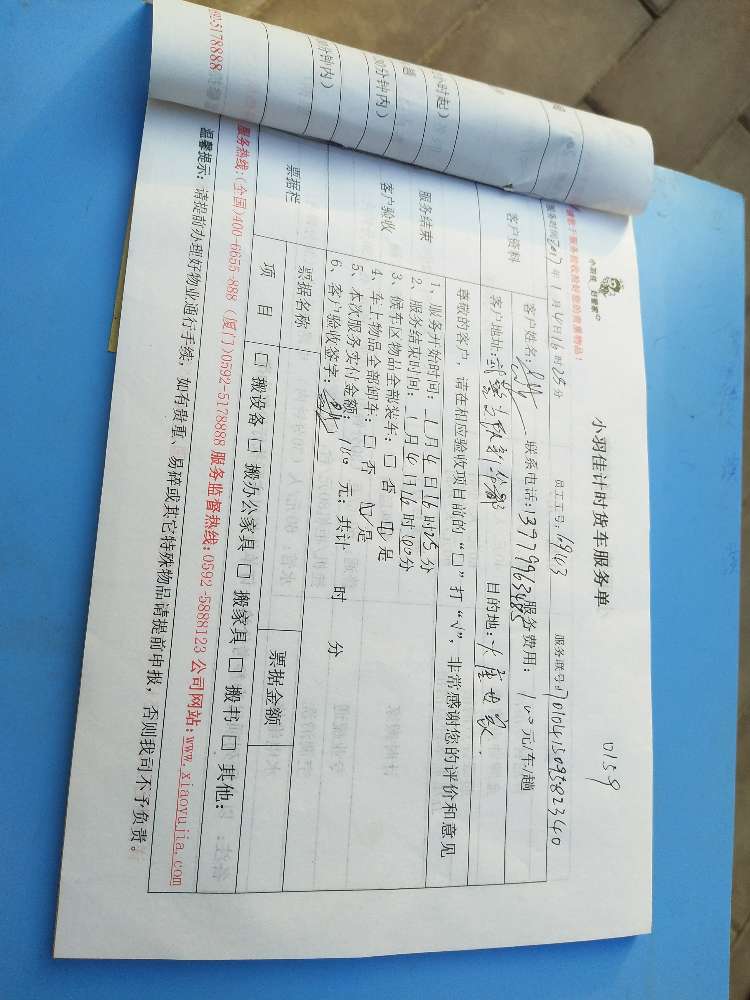 小羽佳 好管家
小羽佳计时货车服务单
0159
服务时间:2017年1月4日16时25分 员工工号:1943 服务联号:
客户资料
客户姓名: 联系电话:13779963485 服务费用:100元/车/趟
客户地址: 目的地:
尊敬的客户,请在相应验收项目前的“□”打“√”,非常感谢您的评价和意见
服务结束
客户验收
1、服务开始时间:1月4日16时25分
2、服务结束时间:1月4日16时 分
3、候车区物品全部装车:□否 ☑是
4、车上物品全部卸车:□否 ☑是
5、本次服务实付金额:100元;共计 时 分
6、客户验收签字:
票据栏
票据名称 票据金额
项目 □搬设备 □搬办公家具 □搬家具 □搬书 □其他:
服务热线:(全国)400-6655-888 (厦门)0592-5178888 服务监督热线:0592-5888123 公司网站:www.xiaoyujia.com
温馨提示:请提前办理好物业通行手续,如有贵重、易碎或其它特殊物品请提前申报,否则我司不予负责。
小时起)
分钟内)
分钟内)
592-5178888